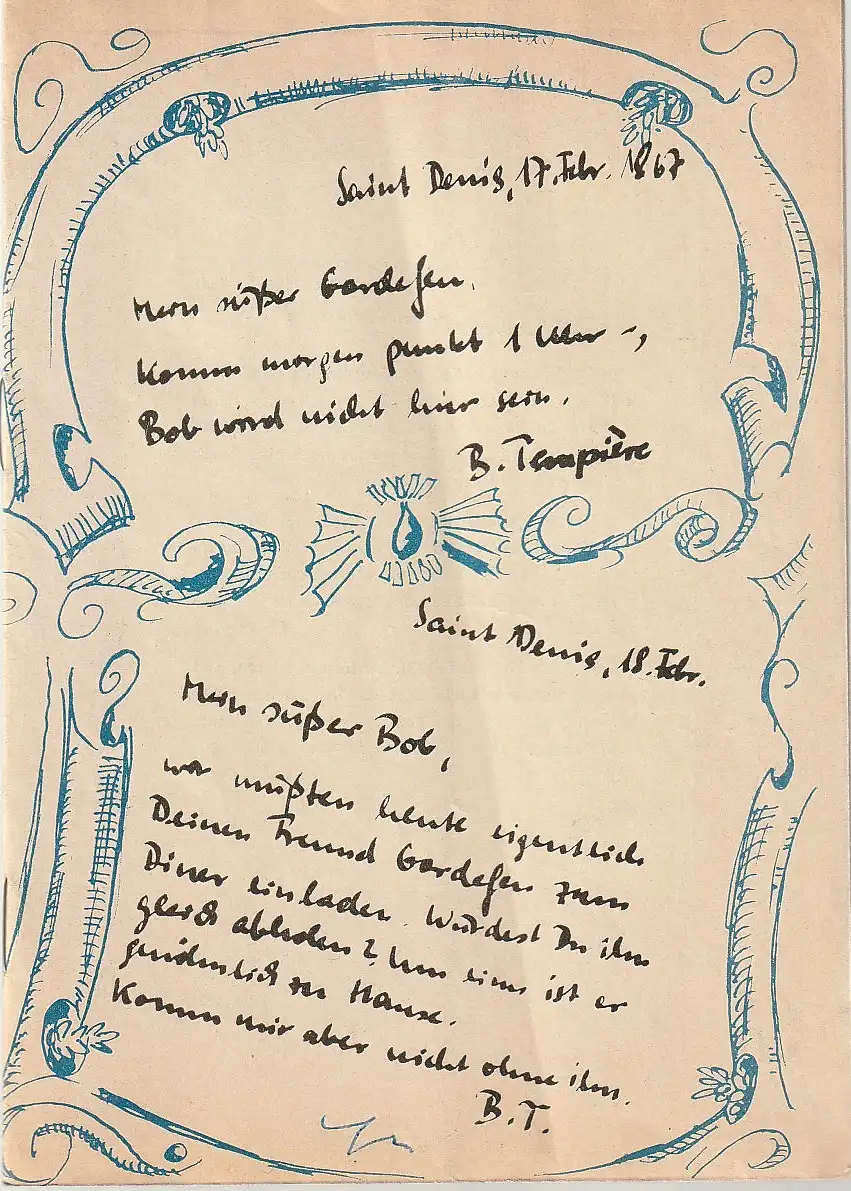 Saint Denis, 17. Febr. 1867
Mein süßer Gardefeu,
Komm morgen punkt 1 Uhr -,
Bob wird nicht hier sein.
B. Tempière
Saint Denis, 18. Febr.
Mein süßer Bob,
wir müßten heute eigentlich
Deinen Freund Gardefeu zum
Diner einladen. Würdest Du ihn
gleich abholen? Um eins ist er
gewöhnlich zu Hause.
Komm mir aber nicht ohne ihn.
B.T.